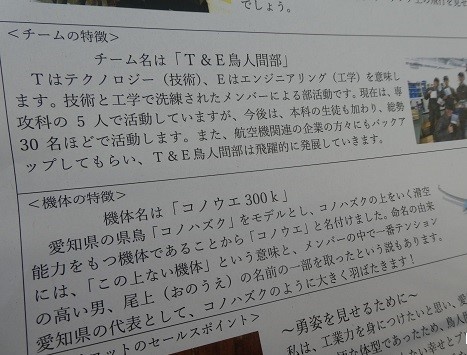 でしょう。
＜チームの特徴＞
チーム名は「Ｔ＆Ｅ鳥人間部」
Ｔはテクノロジー（技術）、Ｅはエンジニアリング（工学）を意味し
ます。技術と工学で洗練されたメンバーによる部活動です。現在は、専
攻科の 5 人で活動していますが、今後は、本科の生徒も加わり、総勢
30 名ほどで活動します。また、航空機関連の企業の方々にもバックア
ップしてもらい、Ｔ＆Ｅ鳥人間部は飛躍的に発展していきます。
＜機体の特徴＞
機体名は「コノウエ300ｋ」
愛知県の県鳥「コノハズク」をモデルとし、コノハズクの上をいく滑空
能力をもつ機体であることから「コノウエ」と名付けました。命名の由来
には、「この上ない機体」という意味と、メンバーの中で一番テンション
の高い男、尾上（おのうえ）の名前の一部を取ったという説もあります。
愛知県の代表として、コノハズクのように大きく羽ばたきます！
ットのセールスポイント＞
～勇姿を見せるために～
私は、工業力を身につけたいと思い、愛